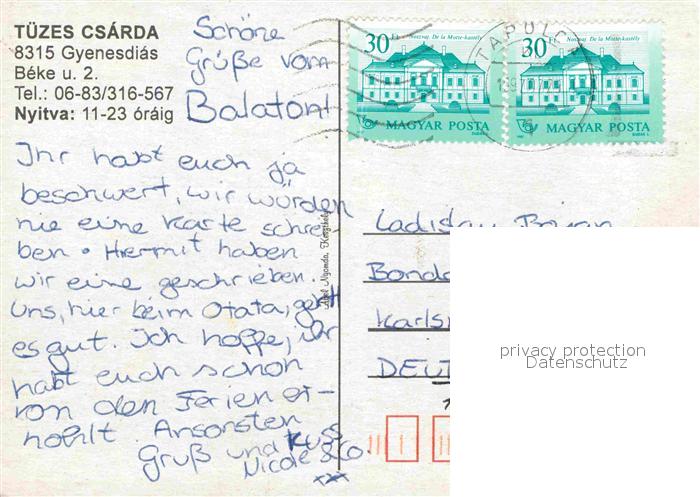 TÜZES CSÁRDA
8315 Gyenesdiás
Béke u. 2.
Tel.: 06-83/316-567
Nyitva: 11-23 óráig
Schöne
Grüße vom
Balaton!
Ihr habt euch ja
beschwert, wir würden
nie eine Karte schrei-
ben. Hiermit haben
wir eine geschrieben.
Uns, hier beim Otata, geht
es gut. Ich hoffe, ihr
habt euch schon
von den Ferien er-
hohlt. Ansonsten
Gruß und Kuss
Nicole & Co.
xxx
Nyomda, Keszthely
30 Ft
Noszvaj. De la Motte-kastély
MAGYAR POSTA
30 Ft
Noszvaj. De la Motte-kastély
MAGYAR POSTA
TAPOLC
Ladislav
Karls
DEUT
privacy protection
Datenschutz